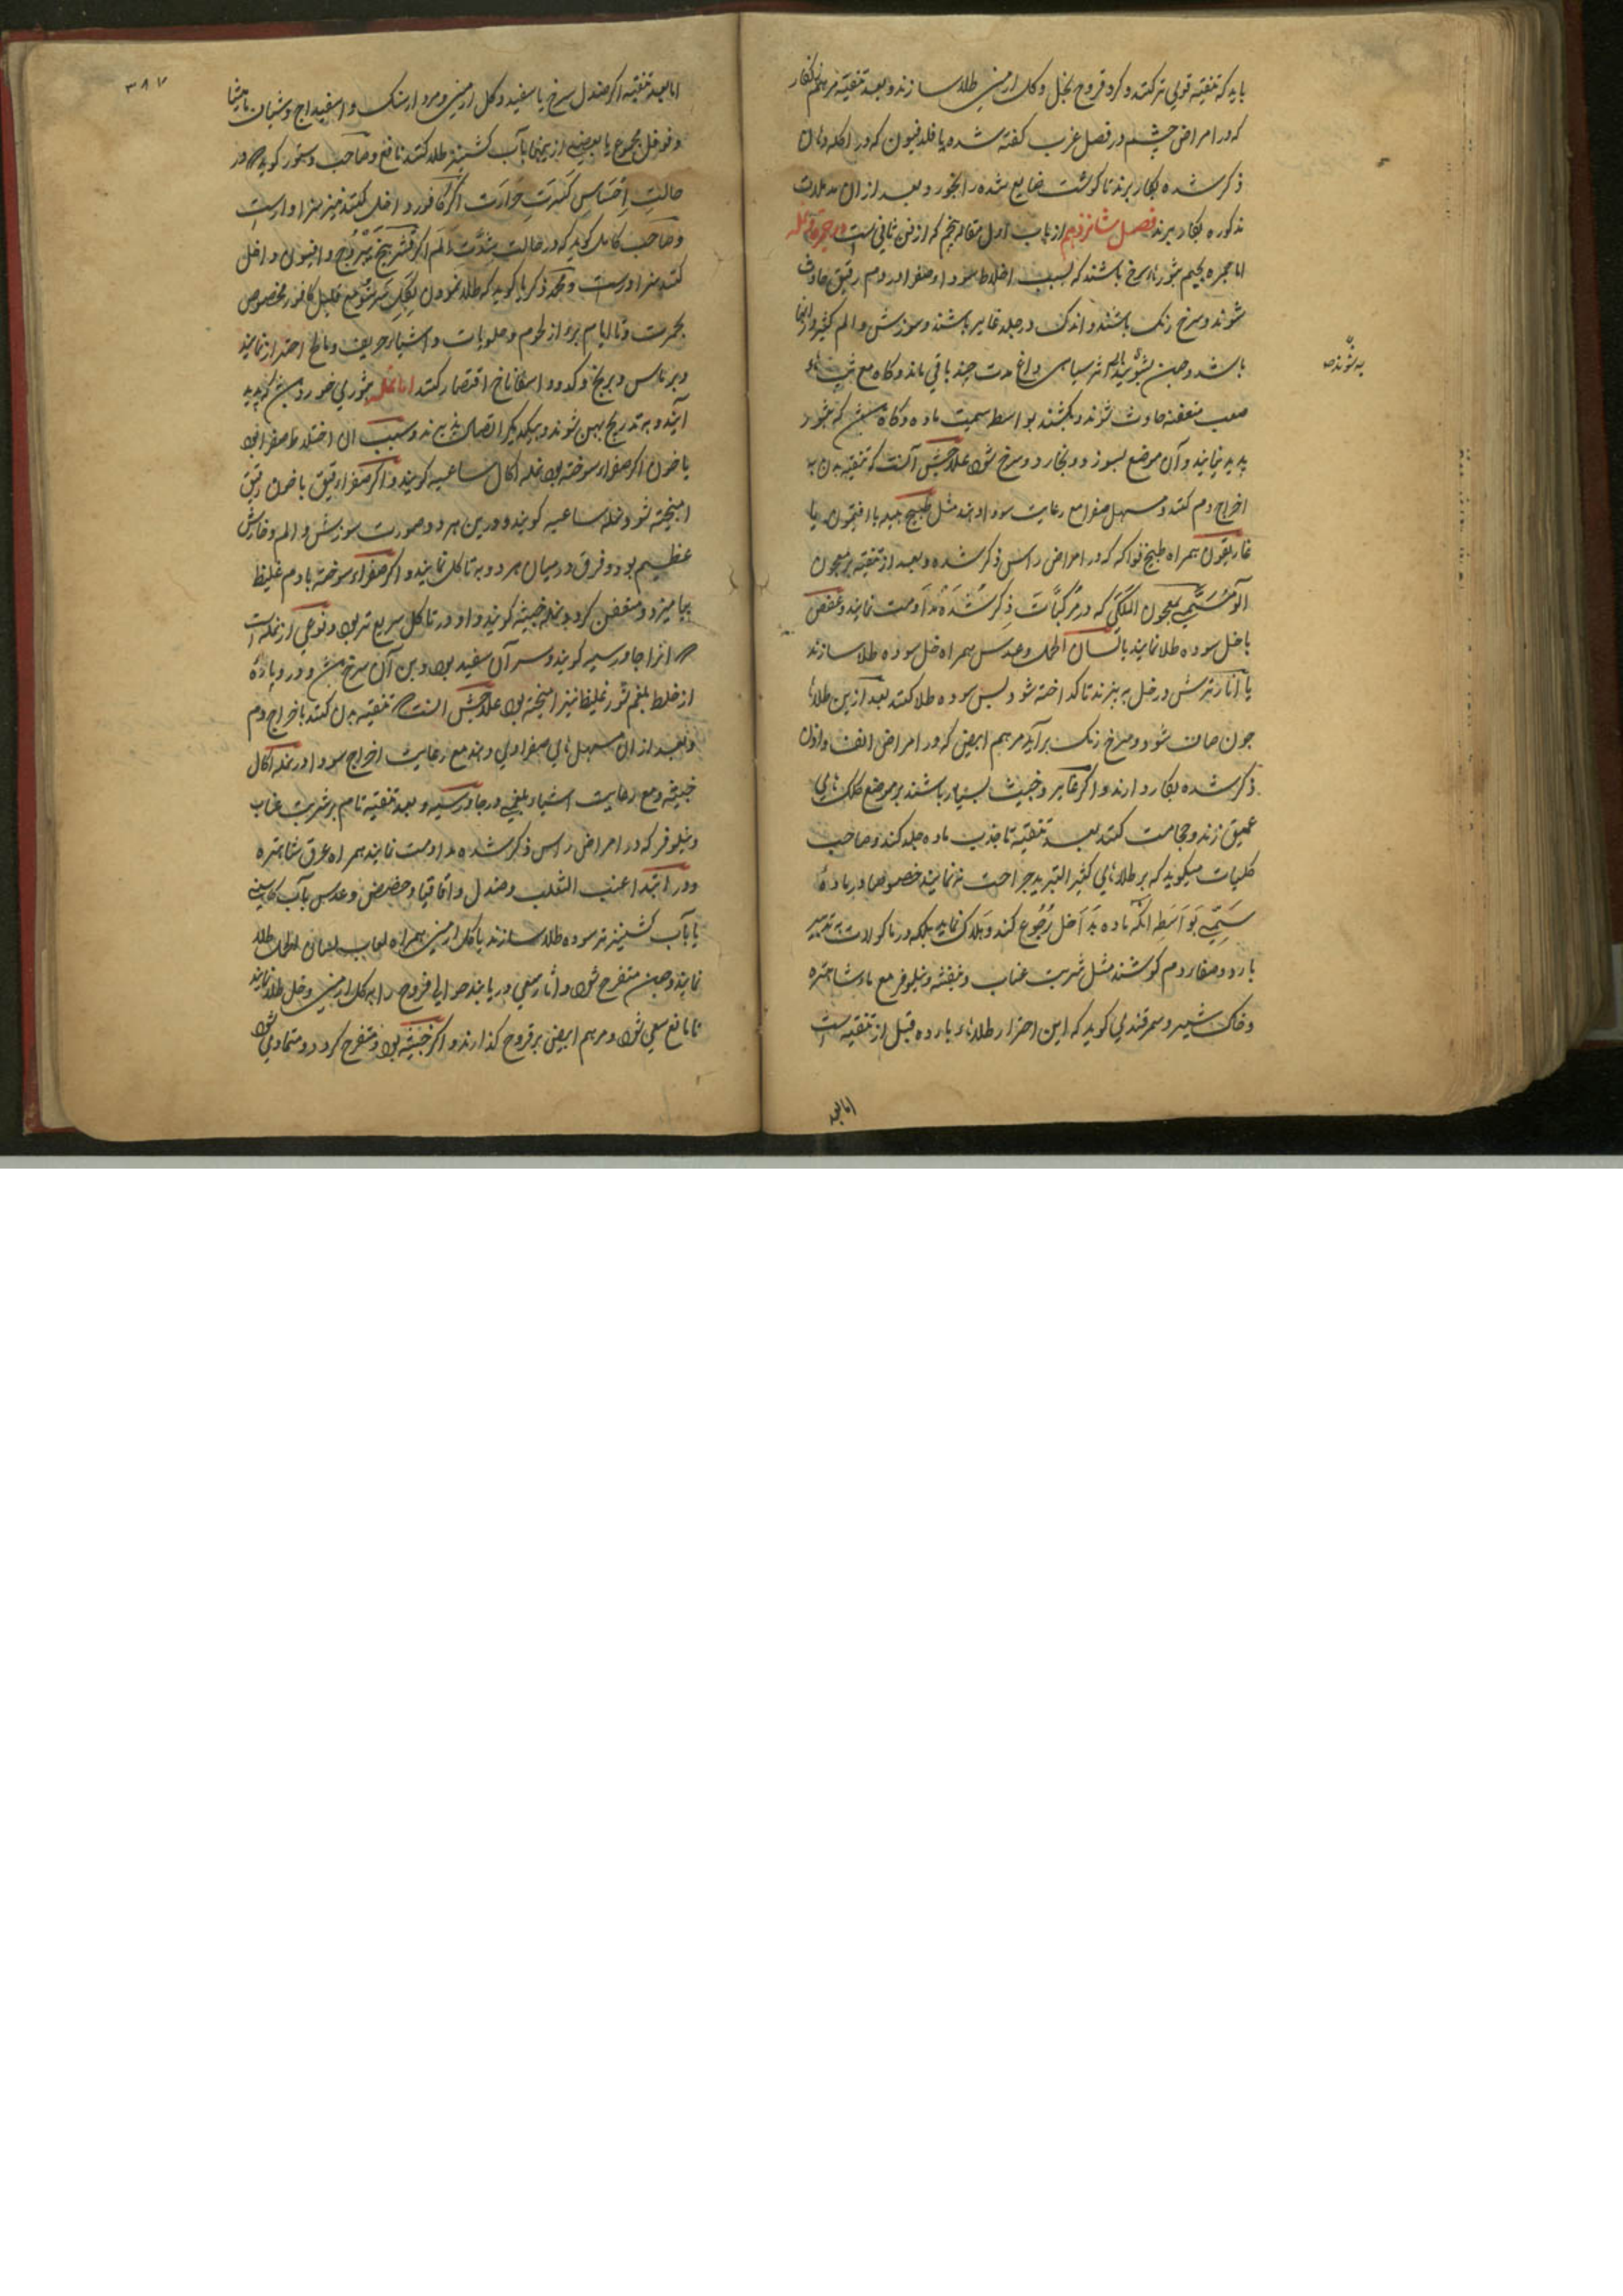 باید که تنقیه قوی تر کنند و کرد قروح بخل و کل ارمنی طلا سازند و بعد تنقیه مرهم زنکار
که در امراض چشم در فصل غرب کفته شده یا فلدفیون که در اکله
ذکر شده بکار برند تا کوشت ضایع شده را بخورد و بعد از ان
مذکوره بکار برند فصل شانزدهم از باب اول مقاله پنجم که از فن ثانی است در جمره و نمله
اما جمره بجیم بثورند سرخ باشند که بسبب اخلاط سودا و صفرا و دم رقیق حادث
شوند و سرخ رنک باشند و اندک در جلد غایر باشند و سوزش و الم کثیر
باشد و چون اثر سیاهی داغ مدت چند باقی ماند و کاه مع تب
صعب متعفنه حادث شوند و بکشند بواسطه سمیت ماده و کاه که بثور
پدید نیایند و آن موضع بسوزد و بخارد و سرخ شود علاجش آنست که تنقیه بدن به
اخراج دم کنند و مسهل صفرا مع رعایت سودا دهند مثل طبیخ هلیله با افتیمون یا
غاریقون همراه طبیخ فواکه که در امراض راس ذکر شده و بعد از تنقیه بر معجون
المسمی بمعجون الملکی که در مرکبات ذکر شده مداومت نمایند و عفص
با خل سوده طلا نمایند یا لسان الحمل و عدس همراه خل سوده طلا سازند
یا انار ترش در خل به پزند تا کداخته شود پس سوده طلا کنند بعد ازین طلاء
چون صاف شود و سرخ رنک برآید مرهم ابیض که در امراض انف و اذن
ذکر شده بکار دارند و اکر غایر و خبیث بسیار باشند بر موضع
عمیق زنند و حجامت کنند بعد تنقیه تا جذب ماده جلد کند و صاحب
کلیات میکوید که بر طلاءهای کثیر التبرید جراحت نه نمایند خصوصا در ماده
سمیه بواسطه آنکه ماده بداخل رجوع کند و هلاک نماید بلکه در ماکولات به تبرید
بارد و صفار دم کوشند مثل شربت عناب و بنفشه و نیلوفر مع ماء شاهتره
و خاکشیر و سمرقندی کوید که این احتراز طلاءهاء بارده قبل از تنقیه است
اما بعد
به شوند
۳۸۷
اما بعد تنقیه اکر صندل سرخ یا سفید و کل ارمنی و مردارسنک و اسفیداج و شیاف مامیثا
و فوفل مجموع یا بعضی ازینها بآب کشنیز طلا کنند نافع و صاحب دستور کوید که در
حالت احساس کثرت حرارت اکر کافور داخل کنند نیز سزاوارست
و صاحب کامل کوید که در حالت شدت الم اکر قشر بیخ یبروج و افیون داخل
کنند سزاورست و محمد زکریا کوید که طلا نمودن مع قلیل کافور مخصوص
بجمرست و تا ایام برء از لحوم و حلویات و اشیاء حریف و مالح احتراز نمایند
و بر ماس و برنج و کدو و اسفاناخ اقتصار کنند اما نمله بثوری خورد پدید
آیند و به تدریج پهن شوند و بیکدیکر اتصال پذیرند و سبب ان اختلاط صفرا بود
با خون اکر صفراء سوخته بود نمله اکال ساعیه کویند و اکر صفراء رقیق با خون رقیق
امیخته شود نمله ساعیه کویند و درین هر دو صورت سوزش و الم و خارش
عظیم بود و فرق در میان هر دو به تاکل نمایند و اکر صفراء سوخته با دم غلیظ
بیامیزد و متعفن کردد نمله خبیثه کویند و او در تاکل سریع تر بود و نوعی از نمله است
که انرا جاورسیه کویند و سر آن سفید بود و بن آن سرخ و در و ماده
از خلط بلغم شور غلیظ نیز امیخته بود علاجش انست که تنقیه بدن کنند باخراج دم
و بعد از ان مسهل های صفراوی دهند مع رعایت اخراج سودا در نمله اکال
خبیثه و مع رعایت اشیاء بلغمی در جاورسیه و بعد تنقیه تام بر شربت عناب
و نیلوفر که در امراض راس ذکر شده مداومت نمایند همراه عرق شاهتره
و در ابتدا عنب الثعلب و صندل و اقاقیا و حضض و عدس بآب کاسنی
یا بآب کشنیز تر سوده طلا سازند یا کل ارمنی همراه لعاب لسان الحمل طلا
نمایند و چون متقرح شود و آثار سعی دریابند حوالی قروح را به کل ارمنی و خل طلا نمایند
تا مانع سعی شود و مرهم ابیض بر قروح کذارند و اکر خبیثه بود و متقرح کردد و متمادی شود